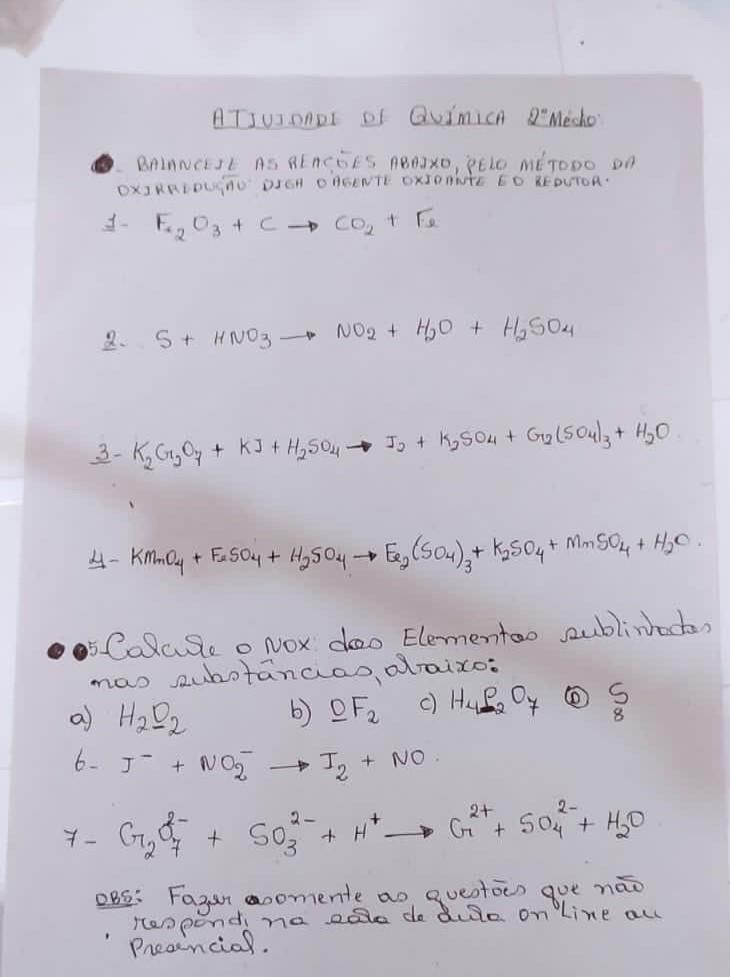 ATIVIDADE DE QUÍMICA 2º Médio
- BALANCEIE AS REAÇÕES ABAIXO, PELO MÉTODO DA
OXIRREDUÇÃO. DIGA O AGENTE OXIDANTE E O REDUTOR.
1- Fe₂O₃ + C → CO₂ + Fe
2- S + HNO₃ → NO₂ + H₂O + H₂SO₄
3- K₂Cr₂O₇ + KI + H₂SO₄ → I₂ + K₂SO₄ + Cr₂(SO₄)₃ + H₂O.
4- KMnO₄ + FeSO₄ + H₂SO₄ → Fe₂(SO₄)₃ + K₂SO₄ + MnSO₄ + H₂O.
5- Calcule o NOX: dos Elementos sublinhados
nas substâncias, abaixo:
a) H₂O₂ b) OF₂ c) H₄P₂O₇ D) S₈
6- I⁻ + NO₂⁻ → I₂ + NO.
7- Cr₂O₇²⁻ + SO₃²⁻ + H⁺ → Cr²⁺ + SO₄²⁻ + H₂O
OBS: Fazer somente as questões que não
respondi na sala de aula on line ou
Presencial.